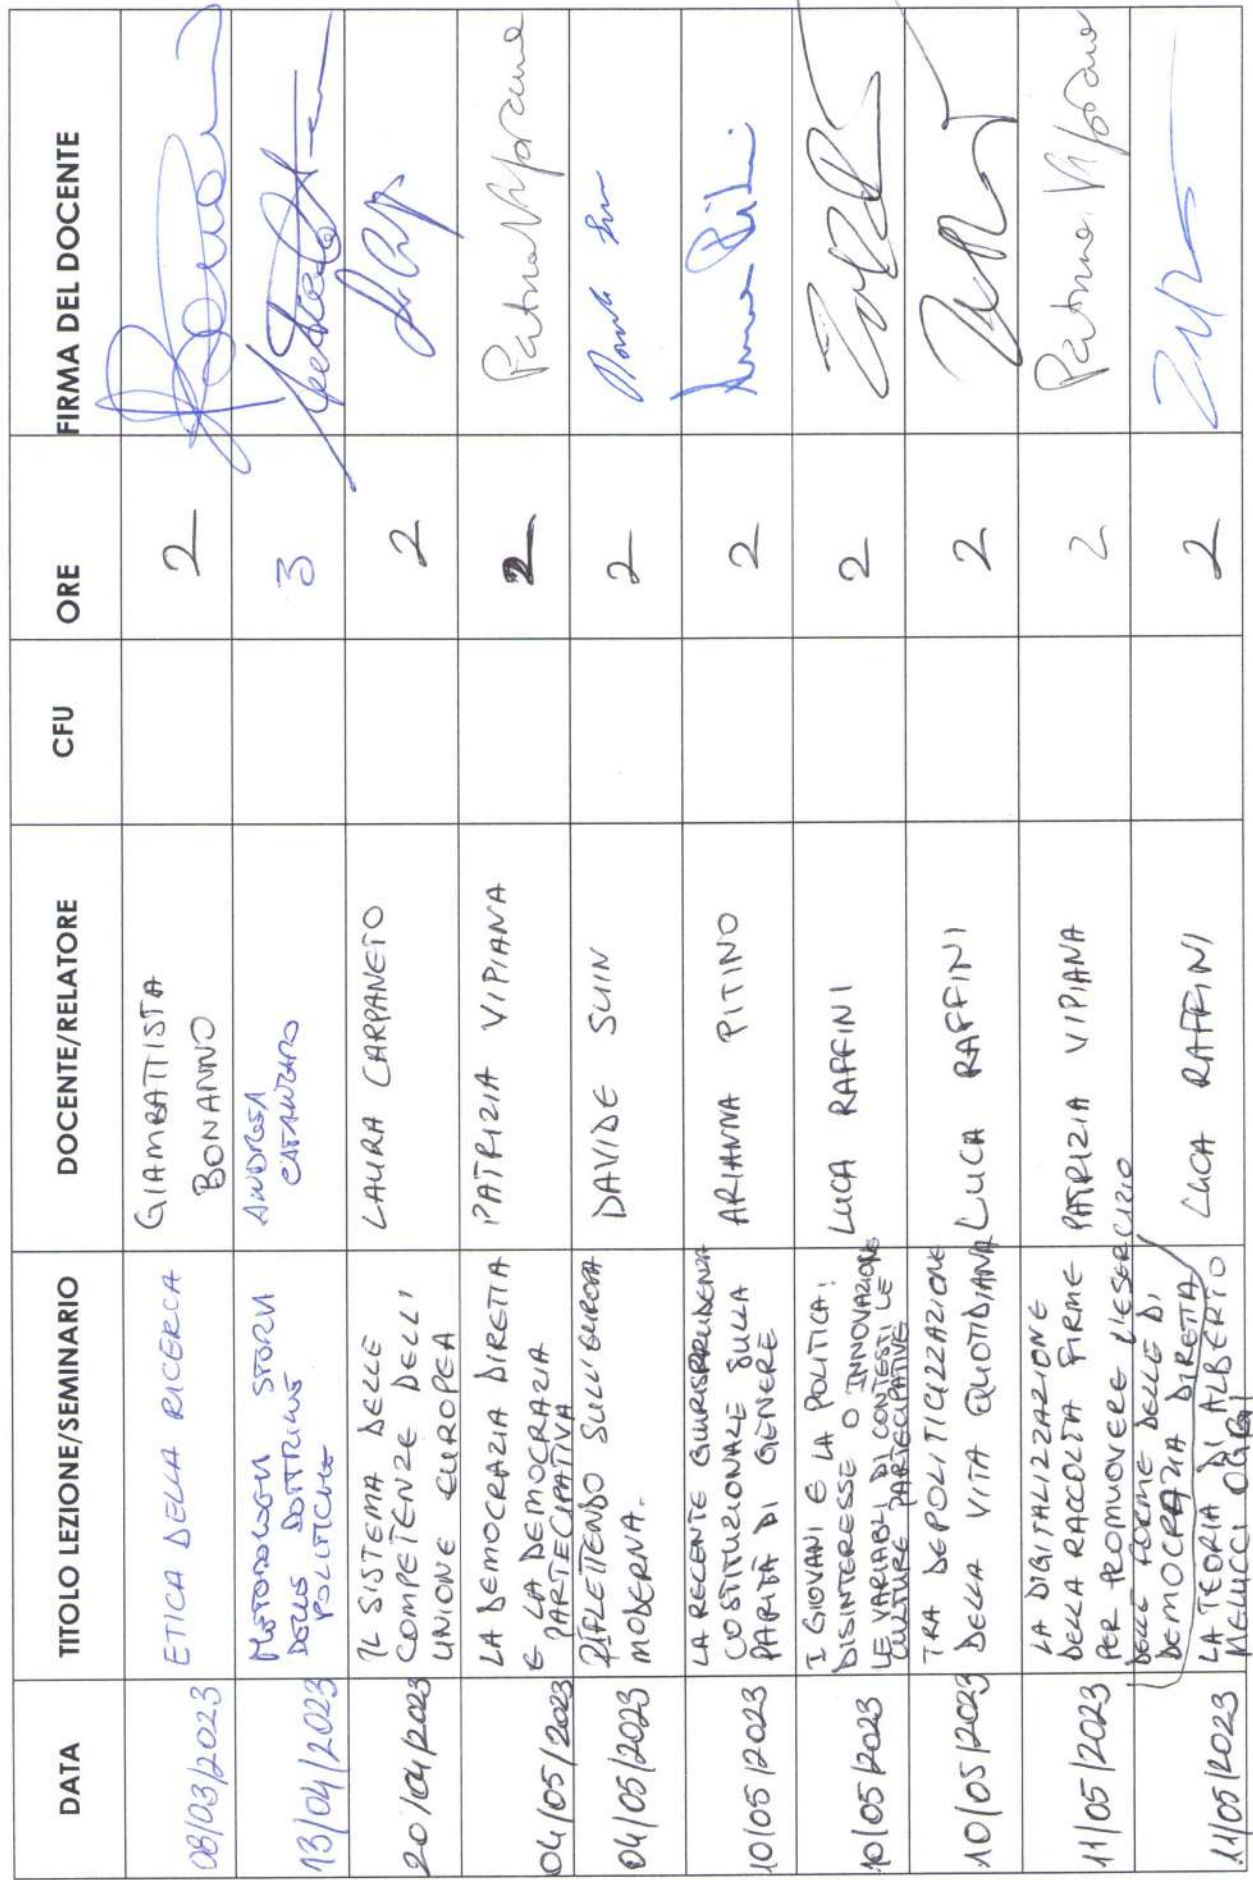 DATA
TITOLO LEZIONE/SEMINARIO
DOCENTE/RELATORE
CFU
ORE
FIRMA DEL DOCENTE
08/03/2023
ETICA DELLA RICERCA
GIAMBATTISTA
BONANNO
2
13/04/2023
METODOLOGIA STORIA
DELLE DOTTRINE
POLITICHE
ANDREA
CATANZARO
3
20/04/2023
IL SISTEMA DELLE
COMPETENZE DELL'
UNIONE EUROPEA
LAURA CARPANETO
2
04/05/2023
LA DEMOCRAZIA DIRETTA
E LA DEMOCRAZIA
PARTECIPATIVA
PATRIZIA VIPIANA
2
Patrizia Vipiana
04/05/2023
RIFLETTENDO SULL'EUROPA
MODERNA.
DAVIDE SUIN
2
10/05/2023
LA RECENTE GIURISPRUDENZA
COSTITUZIONALE SULLA
PARITÀ DI GENERE
ARIANNA PITINO
2
10/05/2023
I GIOVANI E LA POLITICA:
DISINTERESSE O INNOVAZIONE
LE VARIABILI DI CONTESTI LE
CULTURE PARTECIPATIVE
LUCA RAFFINI
2
10/05/2023
TRA DEPOLITICIZZAZIONE
DELLA VITA QUOTIDIANA
LUCA RAFFINI
2
11/05/2023
LA DIGITALIZZAZIONE
DELLA RACCOLTA FIRME
PER PROMUOVERE L'ESERCIZIO
DELLE FORME DELLE DI
DEMOCRAZIA DIRETTA
PATRIZIA VIPIANA
2
Patrizia Vipiana
11/05/2023
LA TEORIA DI ALBERTO
MELUCCI OGGI
LUCA RAFFINI
2